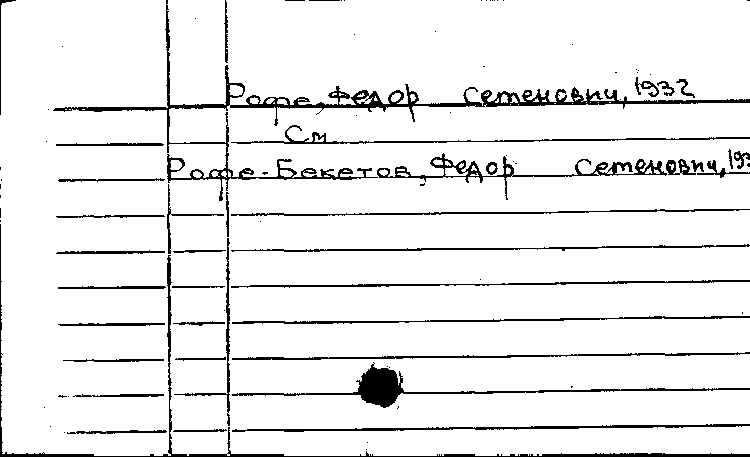 Рофе, Федор Семенович, 1932
См.
Рофе-Бекетов, Федор Семенович, 193